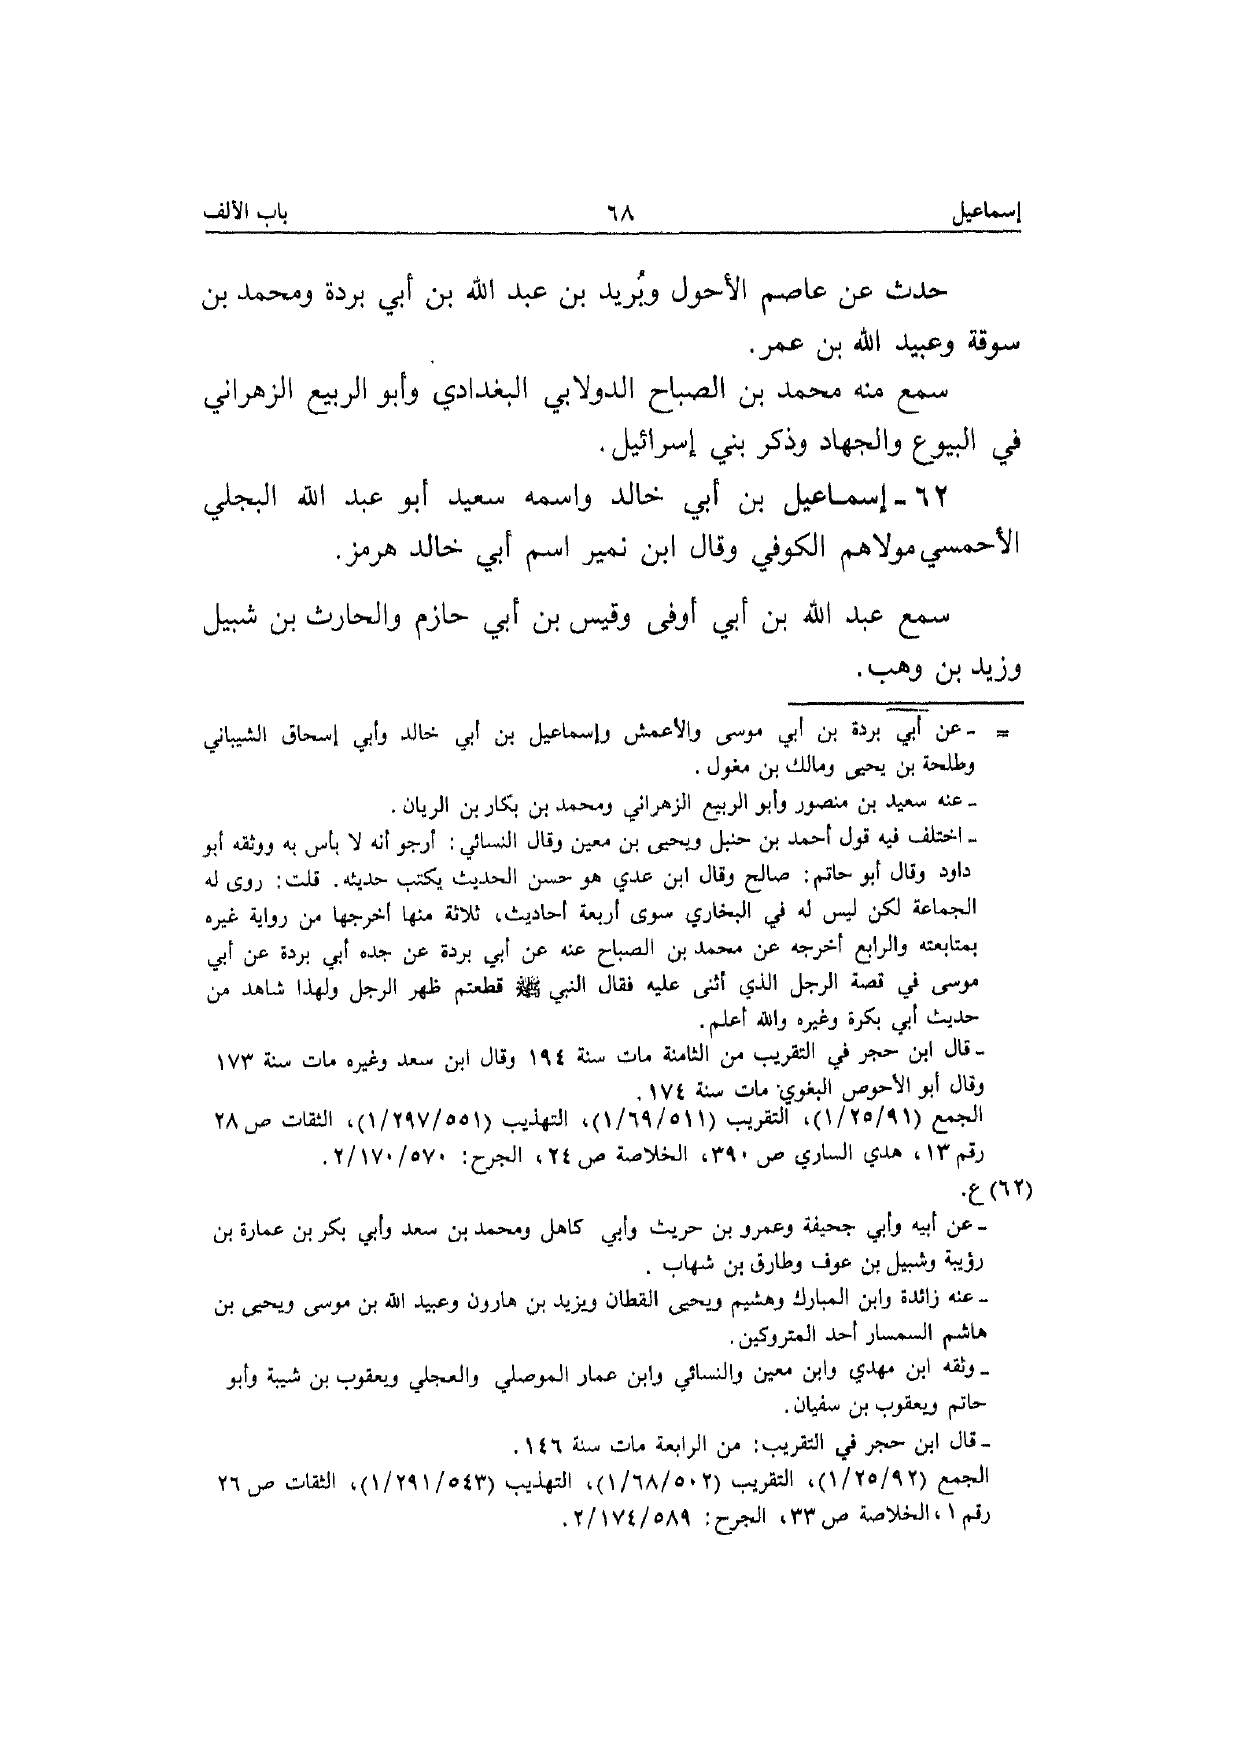 إسماعيل ٦٨ باب الألف
حدث عن عاصم الأحول وبُريد بن عبد الله بن أبي بردة ومحمد بن
سوقة وعبيد الله بن عمر.
سمع منه محمد بن الصباح الدولابي البغدادي وأبو الربيع الزهراني
في البيوع والجهاد وذكر بني إسرائيل.
٦٢ - إسماعيل بن أبي خالد واسمه سعيد أبو عبد الله البجلي
الأحمسي مولاهم الكوفي وقال ابن نمير اسم أبي خالد هرمز.
سمع عبد الله بن أبي أوفى وقيس بن أبي حازم والحارث بن شبيل
وزيد بن وهب.
= - عن أبي بردة بن أبي موسى والأعمش وإسماعيل بن أبي خالد وأبي إسحاق الشيباني
وطلحة بن يحيى ومالك بن مغول.
- عنه سعيد بن منصور وأبو الربيع الزهراني ومحمد بن بكار بن الريان.
- اختلف فيه قول أحمد بن حنبل ويحيى بن معين وقال النسائي: أرجو أنه لا بأس به ووثقه أبو
داود وقال أبو حاتم: صالح وقال ابن عدي هو حسن الحديث يكتب حديثه. قلت: روى له
الجماعة لكن ليس له في البخاري سوى أربعة أحاديث، ثلاثة منها أخرجها من رواية غيره
بمتابعته والرابع أخرجه عن محمد بن الصباح عنه عن أبي بردة عن جده أبي بردة عن أبي
موسى في قصة الرجل الذي أثنى عليه فقال النبي ﷺ قطعتم ظهر الرجل ولهذا شاهد من
حديث أبي بكرة وغيره والله أعلم.
- قال ابن حجر في التقريب من الثامنة مات سنة ١٩٤ وقال ابن سعد وغيره مات سنة ١٧٣
وقال أبو الأحوص البغوي مات سنة ١٧٤.
الجمع (١/٢٥/٩١)، التقريب (١/٦٩/٥١١)، التهذيب (١/٢٩٧/٥٥١)، الثقات ص ٢٨
رقم ١٣، هدي الساري ص ٣٩٠، الخلاصة ص ٢٤، الجرح: ٢/١٧٠/٥٧٠.
(٦٢) ع.
- عن أبيه وأبي جحيفة وعمرو بن حريث وأبي كاهل ومحمد بن سعد وأبي بكر بن عمارة بن
رؤيبة وشبيل بن عوف وطارق بن شهاب.
- عنه زائدة وابن المبارك وهشيم ويحيى القطان ويزيد بن هارون وعبيد الله بن موسى ويحيى بن
هاشم السمسار أحد المتروكين.
- وثقه ابن مهدي وابن معين والنسائي وابن عمار الموصلي والعجلي ويعقوب بن شيبة وأبو
حاتم ويعقوب بن سفيان.
- قال ابن حجر في التقريب: من الرابعة مات سنة ١٤٦.
الجمع (١/٢٥/٩٢)، التقريب (١/٦٨/٥٠٢)، التهذيب (١/٢٩١/٥٤٣)، الثقات ص ٢٦
رقم ١، الخلاصة ص ٣٣، الجرح: ٢/١٧٤/٥٨٩.